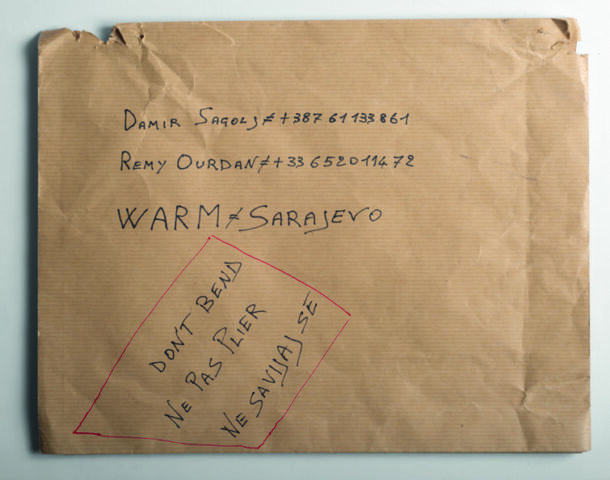 DAMIR SAGOLJ≠+387 61133861
REMY OURDAN≠+33 652011472
WARM≠SARAJEVO
DON'T BEND
NE PAS PLIER
NE SAVIJAJ SE